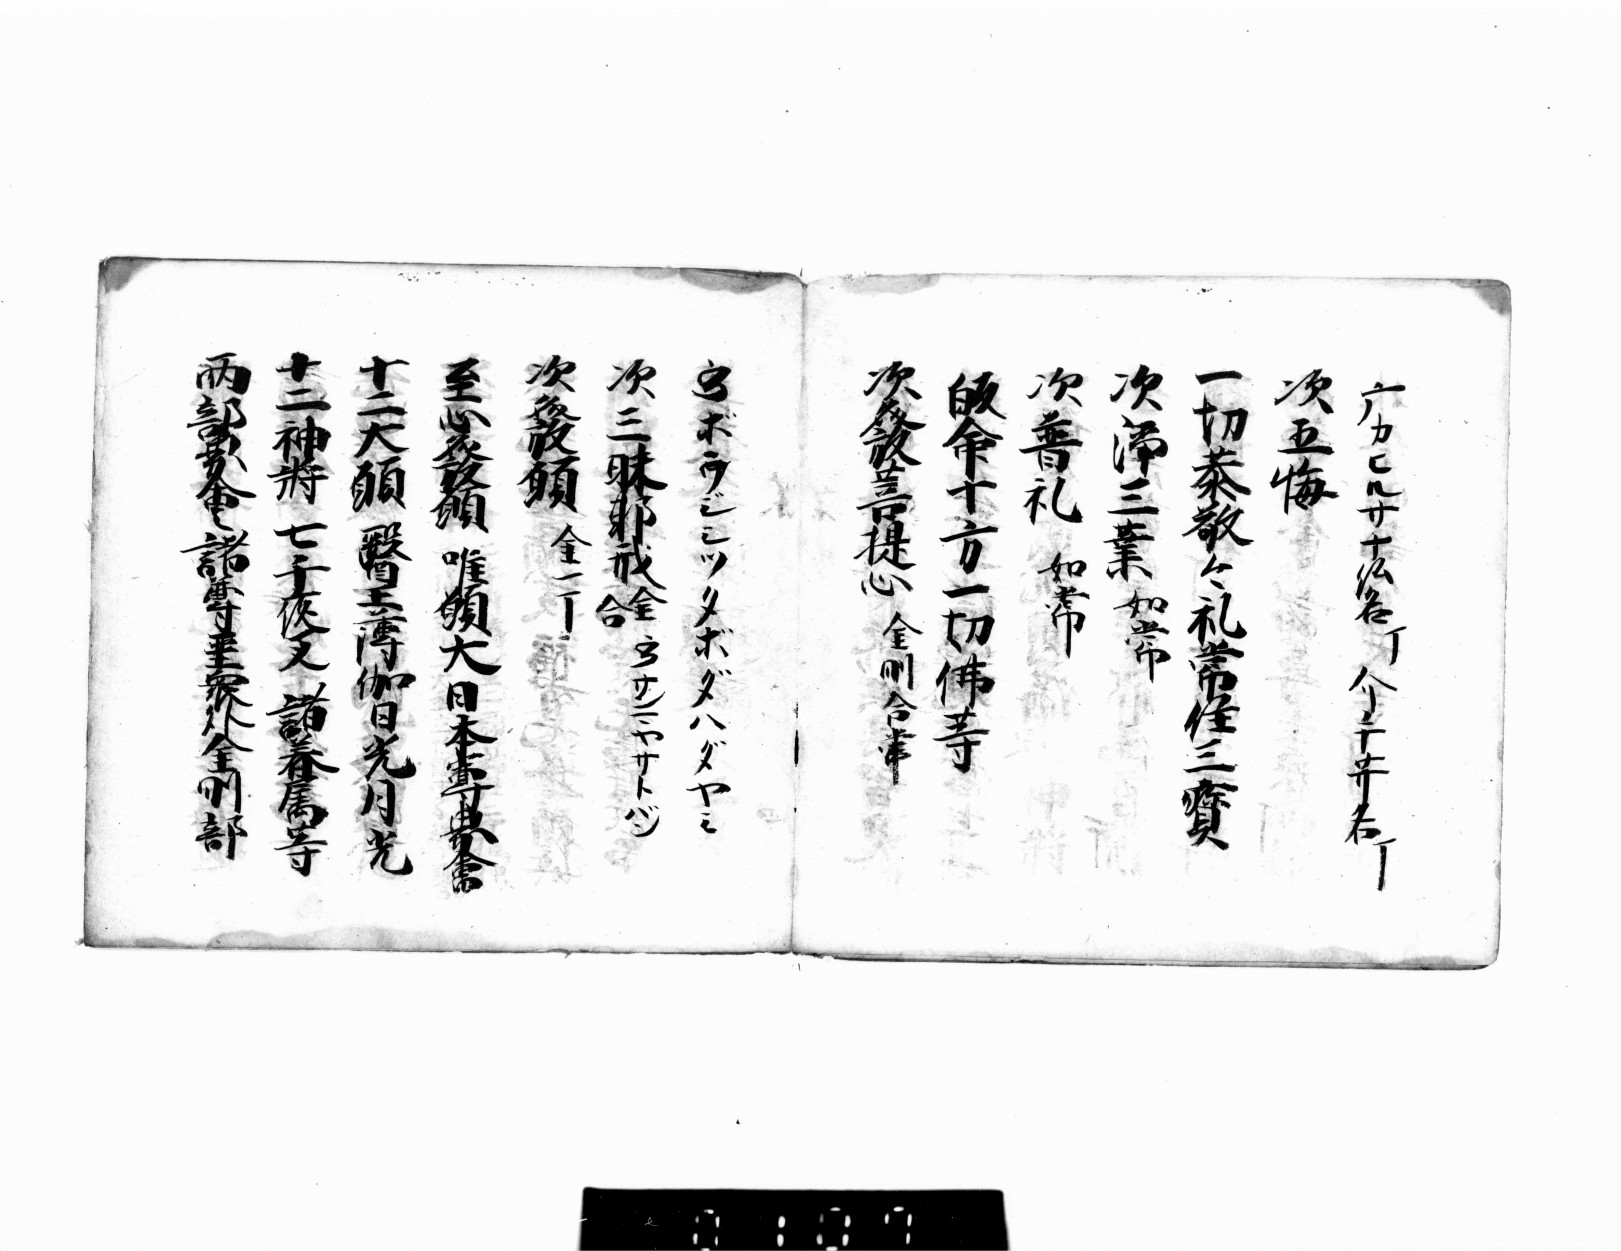 次五悔
一切恭敬々礼常住三寳
次淨三業 如常
次普礼 如常
皈命十方一切佛䒭
次發菩提心 金剛合掌
ボウヂシツタボダハダヤミ
次三昧耶戒 金合 サンマヤサトバン
次發願 金一丁
至心發願 唯願大日本尊界會
十二大願 醫王薄伽日光月光
十二神將 七千夜叉 諸眷属等
兩部界會諸尊聖衆外金剛部
0107